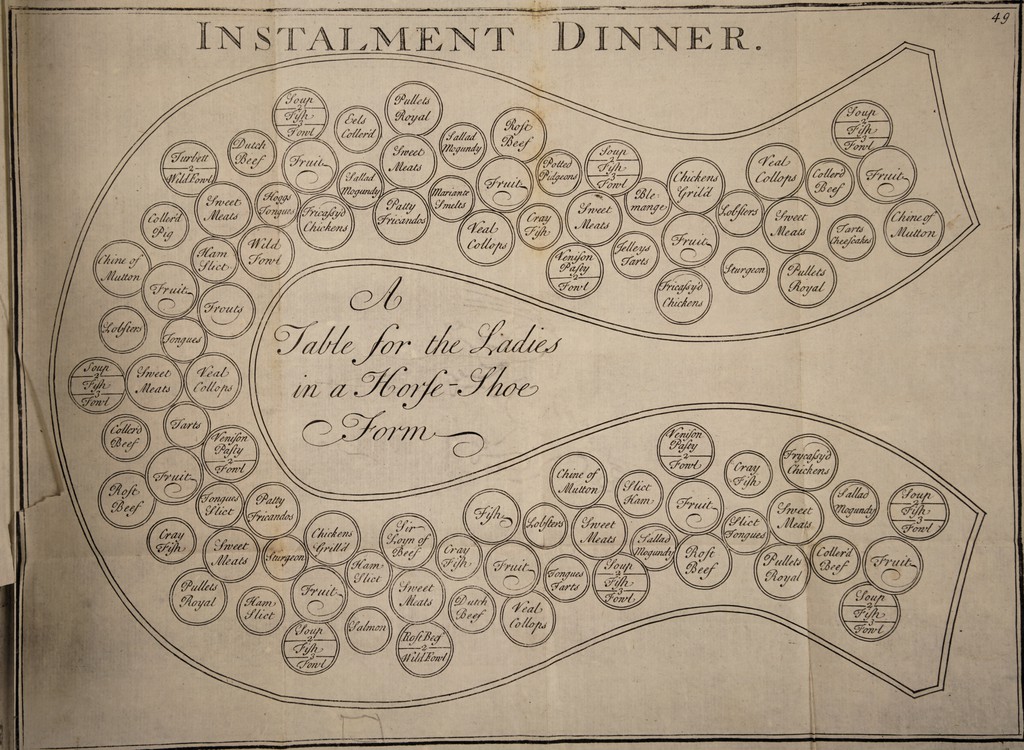 49
INSTALMENT DINNER.
Soup
2
Fish
3
Fowl
Eels
Coller'd
Pullets
Royal
Sallad
Mogundy
Rost
Beef
Turbett
2
Wild Fowl
Dutch
Beef
Fruit
Sweet
Meats
Potted
Pidgeons
Soup
2
Fish
3
Fowl
Chickens
Grild
Veal
Collops
Soup
2
Fish
3
Fowl
Coller'd
Beef
Fruit
Coller'd
Pig
Sweet
Meats
Hoggs
Tongues
Fricassy'd
Chickens
Sallad
Mogundy
Patty
Fricandos
Mariante
Smelts
Fruit
Veal
Collops
Cray
Fish
Sweet
Meats
Ble
mange
Fruit
Lobsters
Sweet
Meats
Tarts
Cheescakes
Chine of
Mutton
Chine of
Mutton
Ham
Slict
Wild
Fowl
Venison
Pasty
2
Fowl
Jelleys
Tarts
Fricassy'd
Chickens
Sturgeon
Pullets
Royal
Fruit
Trouts
Lobsters
Tongues
A
Table for the Ladies
in a Horse-Shoe
Form
Soup
2
Fish
3
Fowl
Sweet
Meats
Veal
Collops
Coller'd
Beef
Tarts
Venison
Pasty
2
Fowl
Rost
Beef
Fruit
Tongues
Slict
Patty
Fricandos
Cray
Fish
Sweet
Meats
Sturgeon
Chickens
Grill'd
Pullets
Royal
Ham
Slict
Fruit
Ham
Slict
Soup
2
Fish
3
Fowl
Salmon
Sir
Loyn of
Beef
Sweet
Meats
Rost Beef
2
Wild Fowl
Cray
Fish
Dutch
Beef
Fish
Fruit
Veal
Collops
Lobsters
Tongues
Tarts
Chine of
Mutton
Sweet
Meats
Soup
2
Fish
3
Fowl
Slict
Ham
Sallad
Mogundy
Venison
Pasty
2
Fowl
Fruit
Rost
Beef
Cray
Fish
Slict
Tongues
Frycassy'd
Chickens
Sweet
Meats
Pullets
Royal
Sallad
Mogundy
Coller'd
Beef
Soup
2
Fish
3
Fowl
Fruit
Soup
2
Fish
3
Fowl